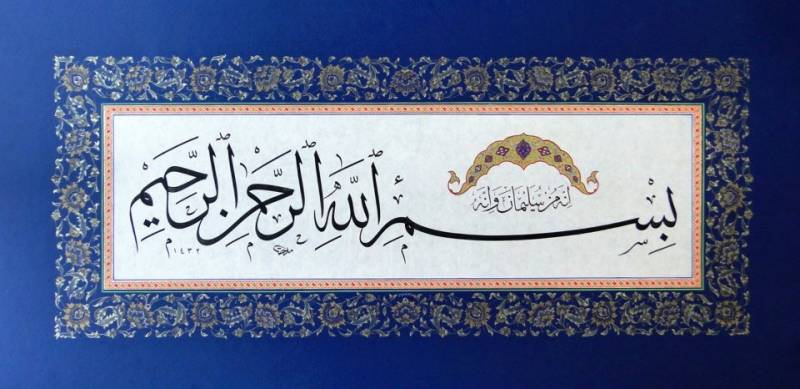 إنه من سليمان وإنه
بِسْمِ اللَّهِ الرَّحْمَنِ الرَّحِيمِ
١٤٣٢